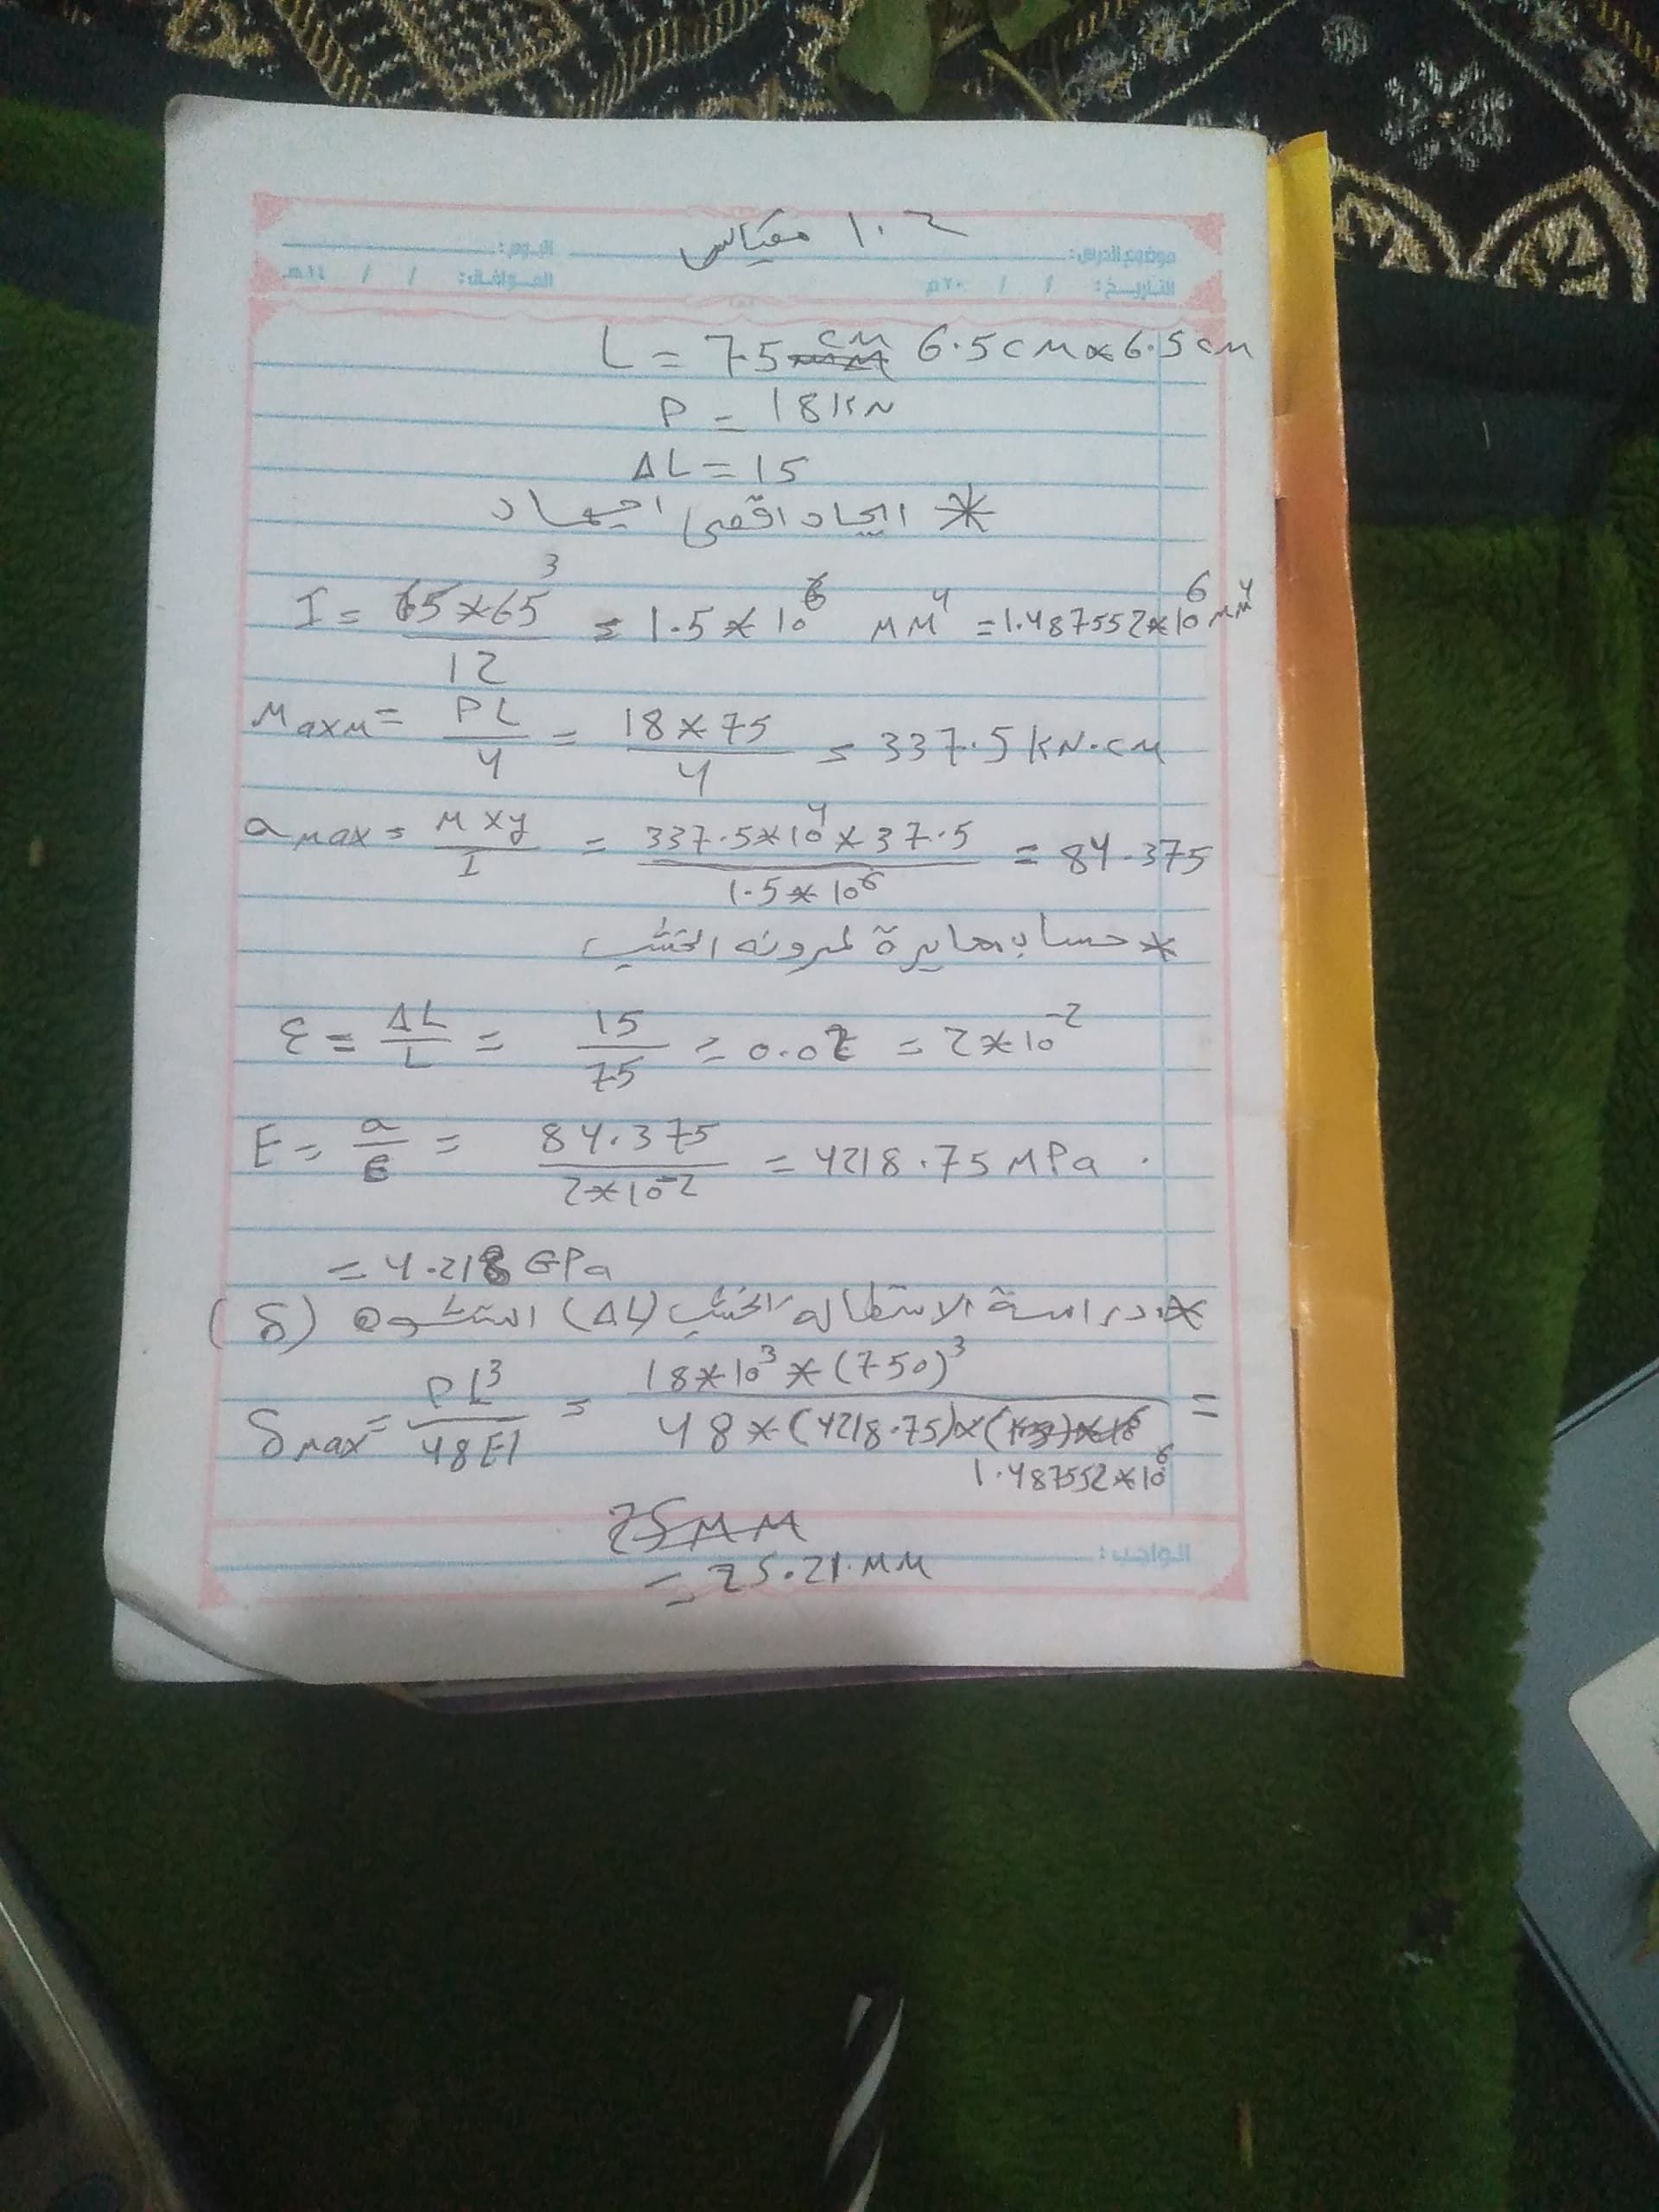 ١.٦ مقياس
موضوع الدرس: اليوم:
التاريخ: / / ٢٠م الموافق: / / ١٤هـ
L = 75 cm 6.5cm x 6.5cm
P = 18 KN
ΔL = 15
* ايجاد اقصى اجهاد
I = 65*65³/12 = 1.5*10⁶ mm⁴ = 1.487552*10⁶ mm⁴
Maxm = PL/4 = 18*75/4 = 337.5 KN.cm
σ max = M x y/I = 337.5*10⁴*37.5/1.5*10⁶ = 84.375
* حساب معايرة لمرونه الخشب
ε = ΔL/L = 15/75 = 0.02 = 2*10⁻²
E = σ/ε = 84.375/2*10⁻² = 4218.75 MPa
= 4.218 GPa
* دراسة الاستطاله الخشب (ΔL) التشوه (δ)
δmax = PL³/48EI = 18*10³*(750)³/48*(4218.75)x(1.487552*10⁶ =
25mm
= 25.21 mm
الواجب: